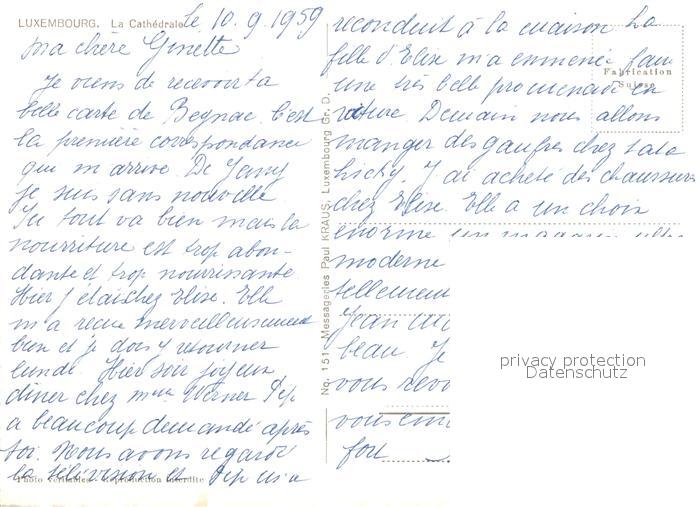 LUXEMBOURG. La Cathédrale
Le 10.9.1959
Ma chère Ginette
Je viens de recevoir ta
belle carte de Beynac. C'est
la première correspondance
qui m'arrive. De Jany
je suis sans nouvelle.
Ici tout va bien mais la
nourriture est trop abon-
dante et trop nourrissante.
Hier j'étais chez Elise. Elle
m'a reçue merveilleusement
bien et je dois y retourner
lundi. Hier soir joyeux
dîner chez Mme Werner. Pép
a beaucoup demandé après
toi. Nous avons regardé
la télévision et Pép m'a
Photo véritables - Reproduction interdite
No. 151 - Messageries Paul KRAUS, Luxembourg Gr. D.
reconduit à la maison. La
fille d'Elise m'a emmenée faire
une très belle promenade en
voiture. Demain nous allons
manger des gaufres chez tata
Licky. J'ai acheté des chaussures
chez Elise. Elle a un choix
énorme un magasin
moderne
tellement
Jean
beau. Je
vous
vous
fort
Fabrication
Suisse
privacy protection
Datenschutz